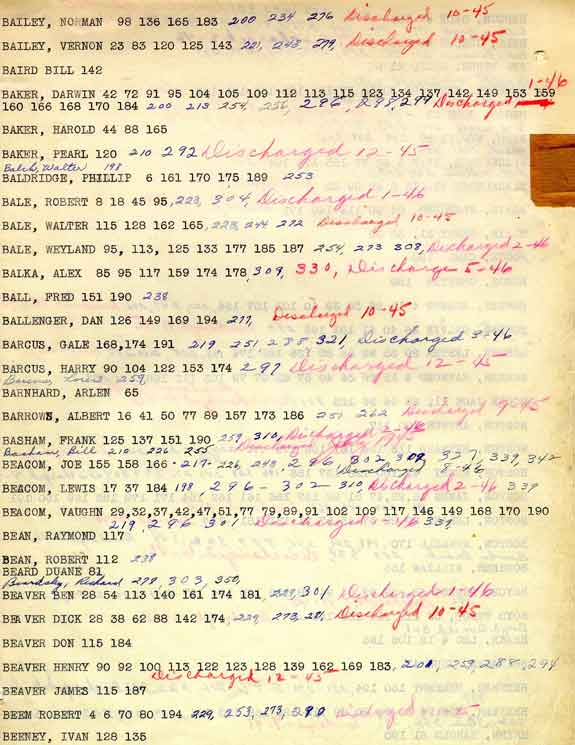 BAILEY, NORMAN 98 136 165 183 200 234 276 Discharged 10-45
BAILEY, VERNON 23 83 120 125 143 221, 243, 279, Discharged 10-45
BAIRD BILL 142
1-46
BAKER, DARWIN 42 72 91 95 104 105 109 112 113 115 123 134 137 142 149 153 159
160 166 168 170 184 200 213 254, 256, 286, 298, 299 Discharged
BAKER, HAROLD 44 88 165
BAKER, PEARL 120 210 292 Discharged 12-45
Balch, Walter 198
BALDRIDGE, PHILLIP 6 161 170 175 189 253
BALE, ROBERT 8 18 45 95, 223, 304, Discharged 1-46
BALE, WALTER 115 128 162 165, 223, 244 272 Discharged 10-45
BALE, WEYLAND 95, 113, 125 133 177 185 187 254, 273 308, Discharged 2-46
BALKA, ALEX 85 95 117 159 174 178, 309, 330, Discharge 5-46
BALL, FRED 151 190 238
BALLENGER, DAN 126 149 169 194 277, Discharged 10-45
BARGUS, GALE 168,174 191 219 251 288 321, Discharged 3-46
BARGUS, HARRY 90 104 122 153 174 297 Discharged 12-45
259,
BARNHARD, ARLEN 65
BARROWS, ALBERT 16 41 50 77 89 157 173 186 251 262 Discharged 9-45
BASHAM, FRANK 125 137 151 190 259, 310, Discharged 2-46
Basham, Bill 210 226 255 Discharged
BEACOM, JOE 155 158 166 217 226, 248, 296 302 309 327, 339, 342
Discharged 8-46
BEACOM, LEWIS 17 37 184 198, 296 - 302 - 310 Discharged 2-46 339
BEACOM, VAUGHN 29,32,37,42,47,51,77 79,89,91 102 109 117 146 149 168 170 190
219, 296 301 Discharged -46 339,
BEAN, RAYMOND 117
BEAN, ROBERT 112 238
BEARD DUANE 81
Beardsley, Richard 279, 303, 350,
BEAVER BEN 28 54 113 140 161 174 181, 229, 301 Discharged 1-46
BEAVER DICK 28 38 62 88 142 174 229, 273, 281, Discharged 10-45
BEAVER DON 115 184
BEAVER HENRY 90 92 100 113 122 123 128 139 162 169 183, 200, 259, 288, 294
Discharged 12-45
BEAVER JAMES 115 187
BEEM ROBERT 4 6 70 80 194 229, 253, 273, 290 Discharged
BEENEY, IVAN 128 135